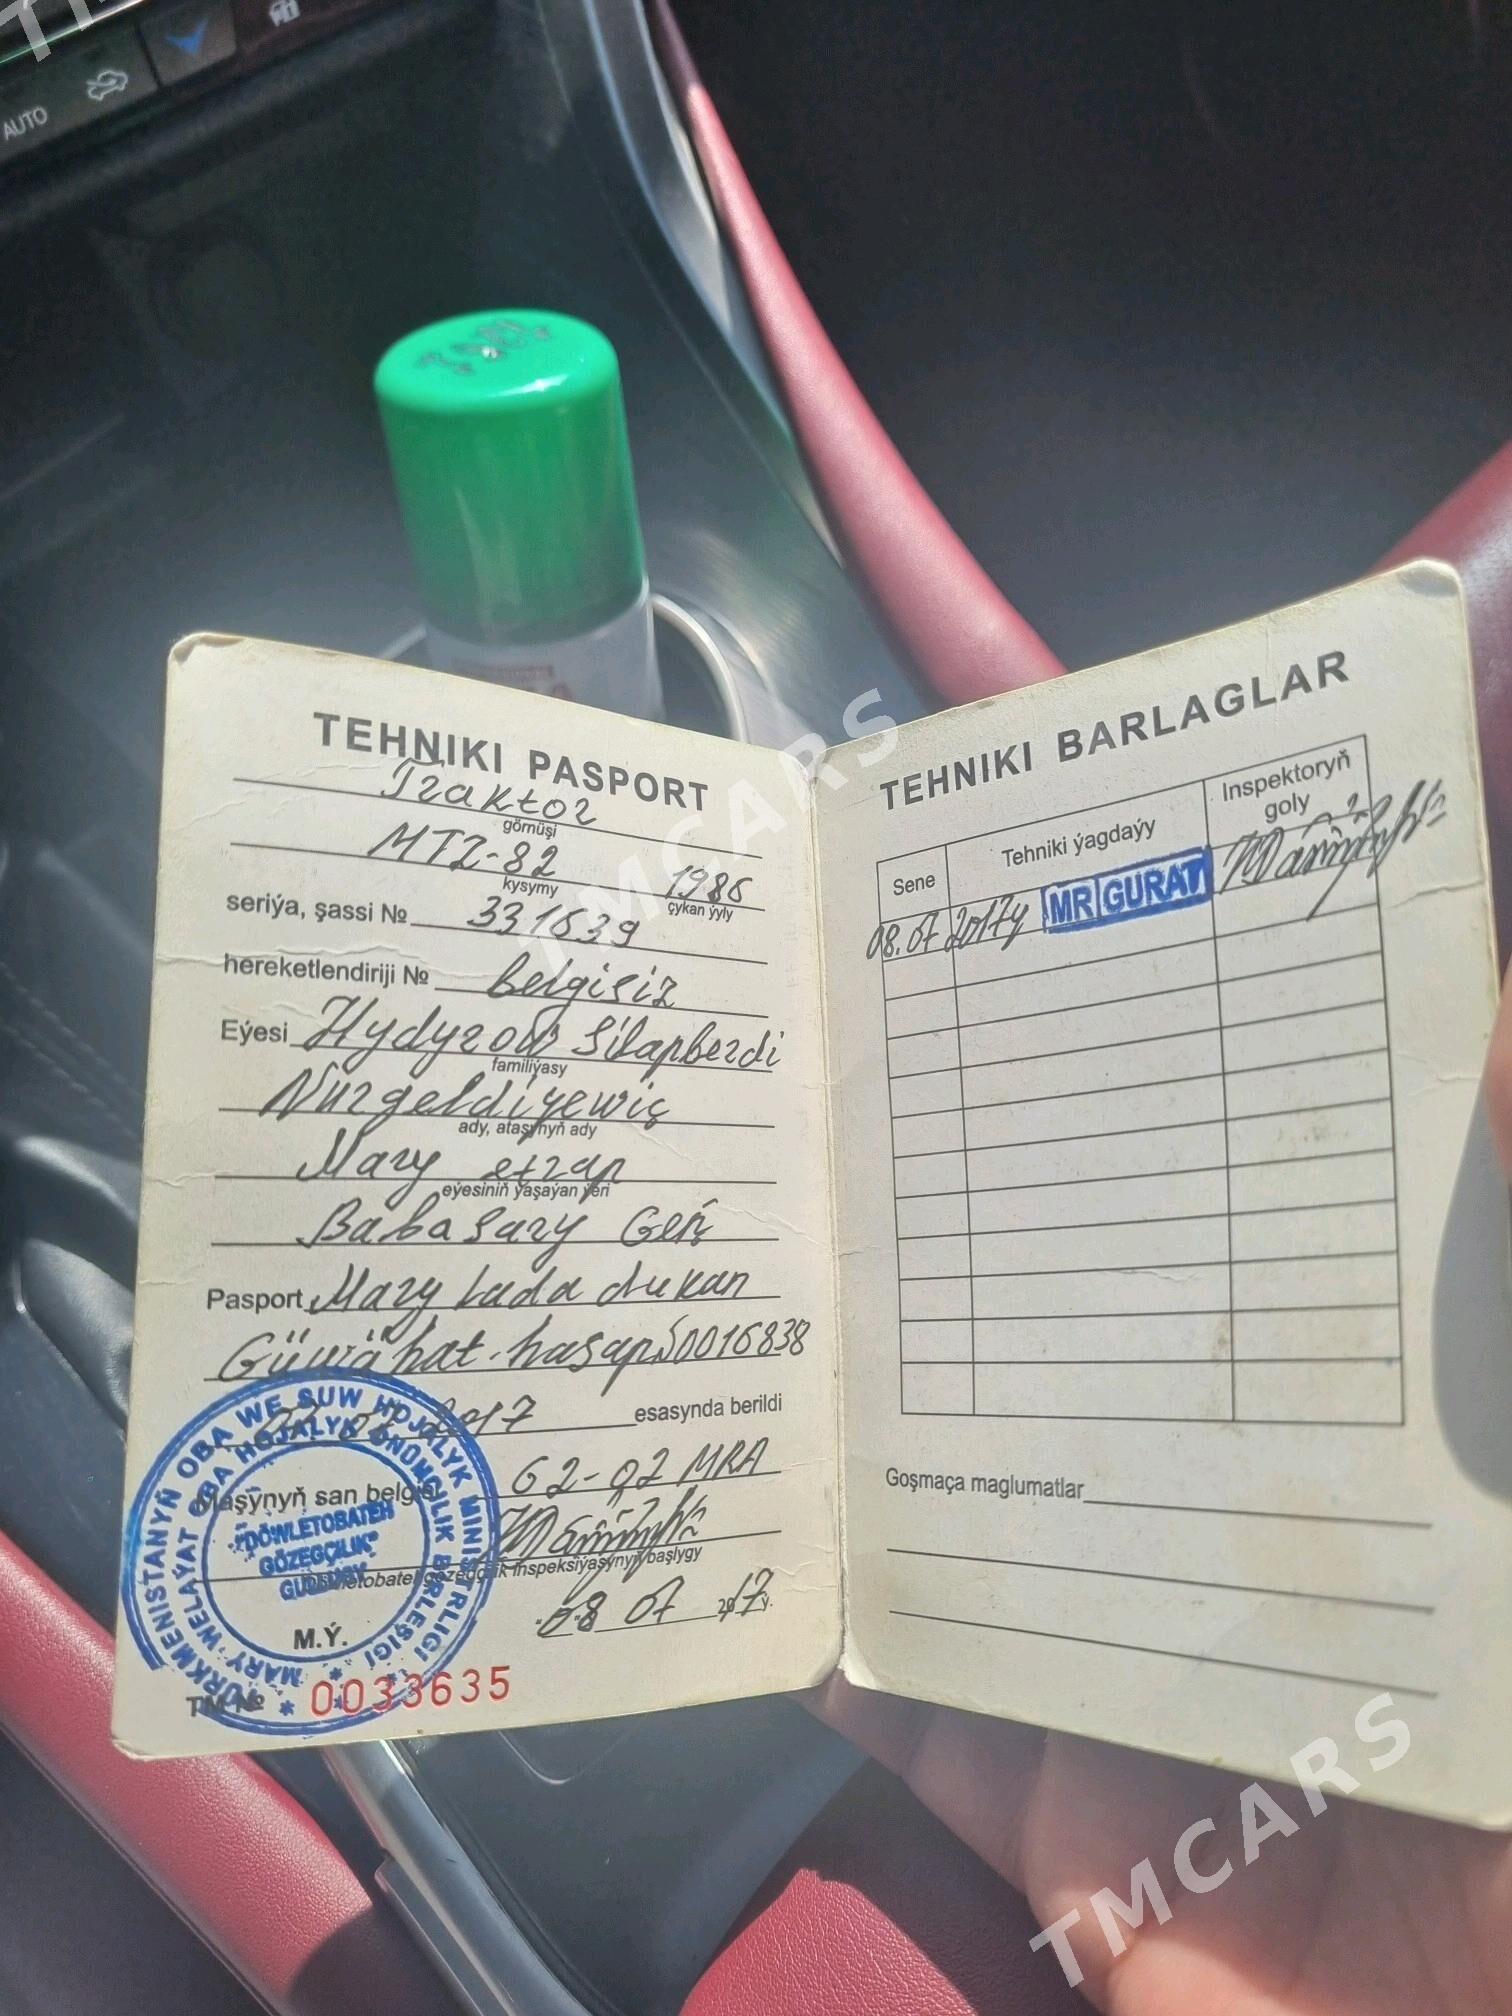 AUTO
TEHNIKI PASPORT
Traktor
görnüşi
MTZ-82 1986
kysymy çykan ýyly
seriýa, şassi № 331639
hereketlendiriji № belgisiz
Eýesi Hydyrow Silapberdi
familiýasy
Nurgeldiýewiç
ady, atasynyň ady
Mary etrap
eýesiniň ýaşaýan ýeri
Babasary Geň
Pasport Mary Lada dukan
Güwähat-hasap 0016838
2017 esasynda berildi
Maşynyň san belgisi 62-02 MRA
Döwletobatehgözegçilik inspeksiýasynyň başlygy
08 07 2017ý.
M.Ý.
TM № 0033635
TÜRKMENISTANYŇ OBA WE SUW HOJALYK MINISTRLIGI
MARY WELAÝAT OBA HOJALYK ÖNÜMÇILIK BIRLEŞIGI
"DÖWLETOBATEH
GÖZEGÇILIK"
TEHNIKI BARLAGLAR
Sene Tehniki ýagdaýy Inspektoryň goly
08.07 2017ý MR GURAT
Goşmaça maglumatlar
TMCARS
TMCARS